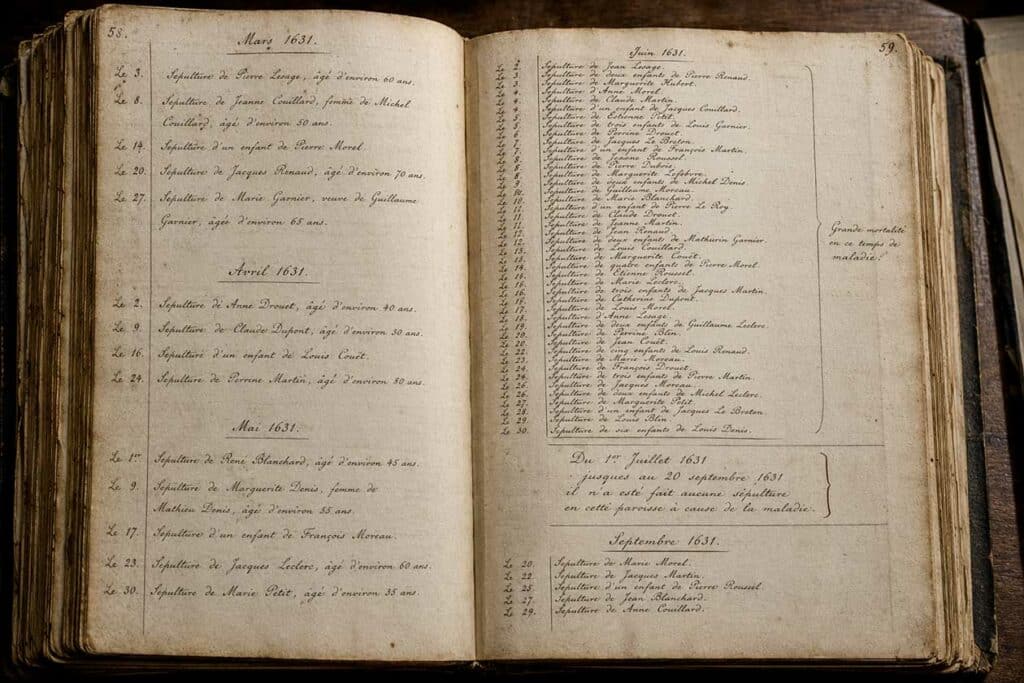 58.
Mars 1631.
Le 3. Sepulture de Pierre Lesage, âgé d'environ 60 ans.
Le 8. Sepulture de Jeanne Couillard, femme de Michel
Couillard, âgé d'environ 50 ans.
Le 14. Sepulture d'un enfant de Pierre Morel.
Le 20. Sepulture de Jacques Renaud, âgé d'environ 70 ans.
Le 27. Sepulture de Marie Garnier, veuve de Guillaume
Garnier, âgé d'environ 65 ans.
Avril 1631.
Le 2. Sepulture de Anne Drouet, âgé d'environ 40 ans.
Le 9. Sepulture de Claude Dupont, âgé d'environ 30 ans.
Le 16. Sepulture d'un enfant de Louis Couët.
Le 24. Sepulture de Perrine Martin, âgé d'environ 80 ans.
Mai 1631.
Le 1er Sepulture de René Blanchard, âgé d'environ 45 ans.
Le 9. Sepulture de Marguerite Denis, femme de
Mathieu Denis, âgé d'environ 55 ans.
Le 17. Sepulture d'un enfant de François Moreau.
Le 23. Sepulture de Jacques Leclerc, âgé d'environ 60 ans.
Le 30. Sepulture de Marie Petit, âgé d'environ 35 ans.
59.
Juin 1631.
Le 2. Sepulture de Jean Lesage.
Le 3. Sepulture de deux enfants de Pierre Renaud.
Le 3. Sepulture de Marguerite Hubert.
Le 4. Sepulture d'Anne Morel.
Le 4. Sepulture de Claude Martin.
Le 4. Sepulture d'un enfant de Jacques Couillard.
Le 5. Sepulture de Estienne Petit.
Le 5. Sepulture de trois enfants de Louis Garnier.
Le 6. Sepulture de Perrine Drouet.
Le 7. Sepulture de Jacques Le Breton.
Le 7. Sepulture d'un enfant de François Martin.
Le 8. Sepulture de Jeanne Roussel.
Le 8. Sepulture de Pierre Dubois.
Le 8. Sepulture de Marguerite Lefebvre.
Le 9. Sepulture de deux enfants de Michel Denis.
Le 10. Sepulture de Guillaume Moreau.
Le 10. Sepulture de Marie Blanchard.
Le Sepulture d'un enfant de Pierre Le Roy.
Le 11. Sepulture de Claude Drouet.
Le 11. Sepulture de Jeanne Martin.
Le 12. Sepulture de Jean Renaud.
Le 12. Sepulture de deux enfants de Mathurin Garnier.
Le 13. Sepulture de Louis Couillard.
Le Sepulture de Marguerite Couët.
Le 14. Sepulture de quatre enfants de Pierre Morel.
Le Sepulture de Etienne Roussel.
Le Sepulture de Marie Leclerc.
Le 16. Sepulture de trois enfants de Jacques Martin.
Le Sepulture de Catherine Dupont.
Le 17. Sepulture de Louis Morel.
Le 18. Sepulture d'Anne Lesage.
Le 19. Sepulture de deux enfants de Guillaume Leclerc.
Le Sepulture de Perrine Blin.
Le 20. Sepulture de Jean Couët.
Le 22. Sepulture de cinq enfants de Louis Renaud.
Le 23. Sepulture de Marie Moreau.
Le 24. Sepulture de François Drouet.
Le 24. Sepulture de trois enfants de Pierre Martin.
Le 26. Sepulture de Jacques Moreau.
Le 26. Sepulture de deux enfants de Michel Leclerc.
Le 27. Sepulture de Marguerite Petit.
Le 28. Sepulture d'un enfant de Jacques Le Breton.
Le 29. Sepulture de Louis Blin.
Le 30. Sepulture de six enfants de Louis Denis.
Grande mortalité
en ce temps de
maladie!
Du 1er Juillet 1631
jusques au 20 septembre 1631
il n'a esté fait aucune sépulture
en cette paroisse à cause de la maladie.
Septembre 1631.
Le 20. Sepulture de Marie Morel.
Le 22 Sepulture de Jacques Martin.
Le 25. Sepulture d'un enfant de Pierre Roussel.
Le 27. Sepulture de Jean Blanchard.
Le 29. Sepulture de Anne Couillard.